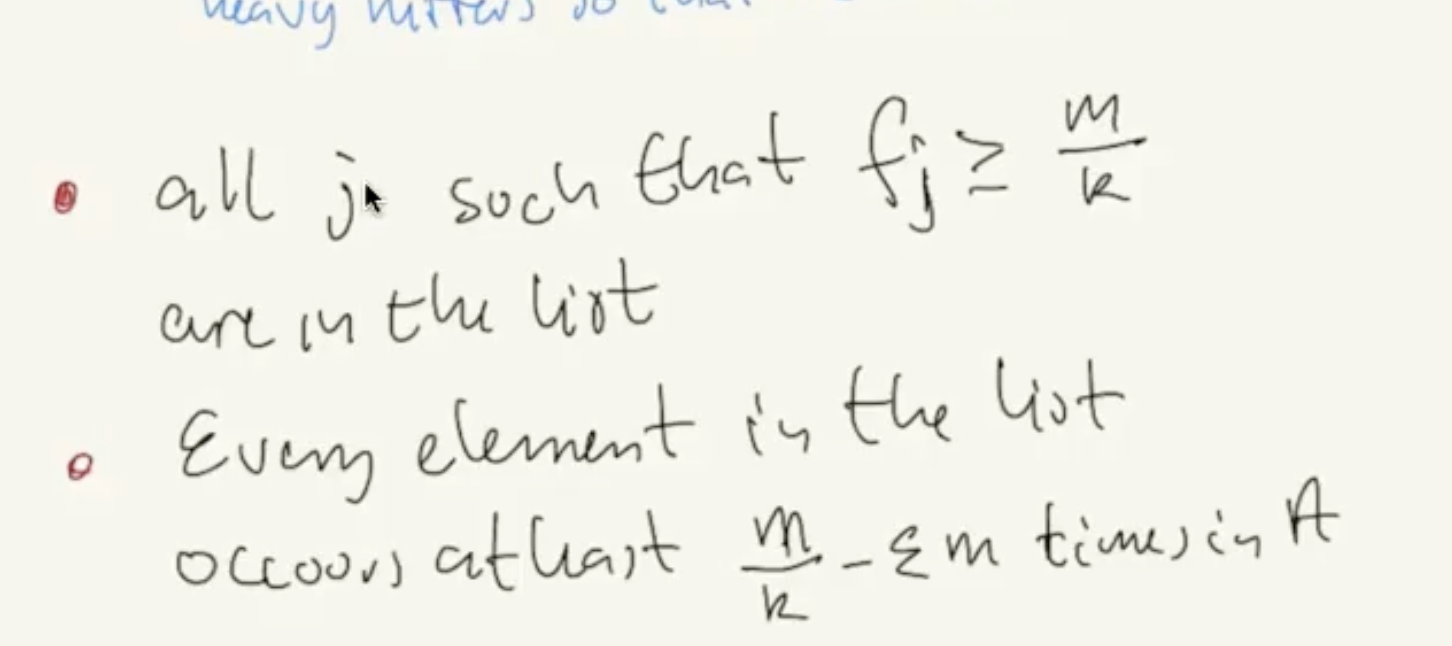 heavy hitters so that
• all j such that fj ≥ m/k
are in the list
• Every element in the list
occurs at least m/k - εm times in A